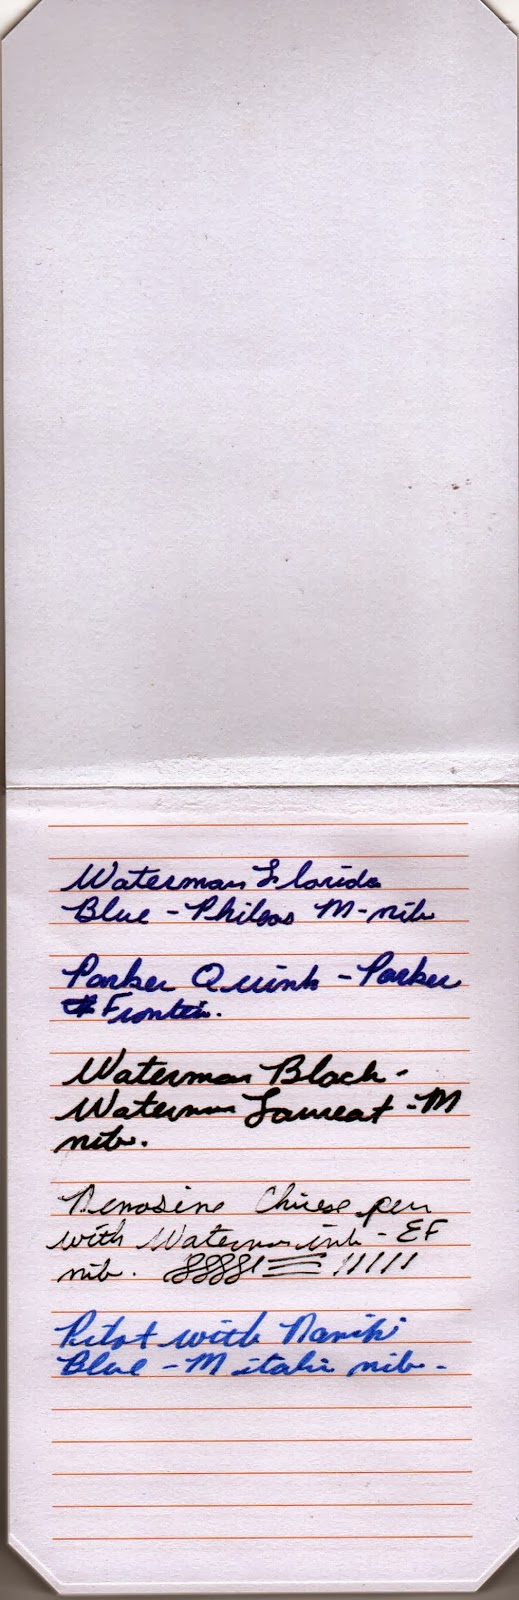 Waterman Florida
Blue - Phileas M-nib
Parker Quink - Parker
Frontier.
Waterman Black -
Waterman Laureat - M
nib.
Chinese pen
with Waterman ink - EF
nib.
Pilot with Namiki
Blue - M italic nib -